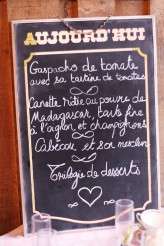 AUJOURD'HUI
Gaspacho de tomate
avec sa tartine de tomates
Canette rôtie au poivre de
Madagascar, tarte fine
à l'oignon et champignons
et son mesclun
Trilogie de desserts